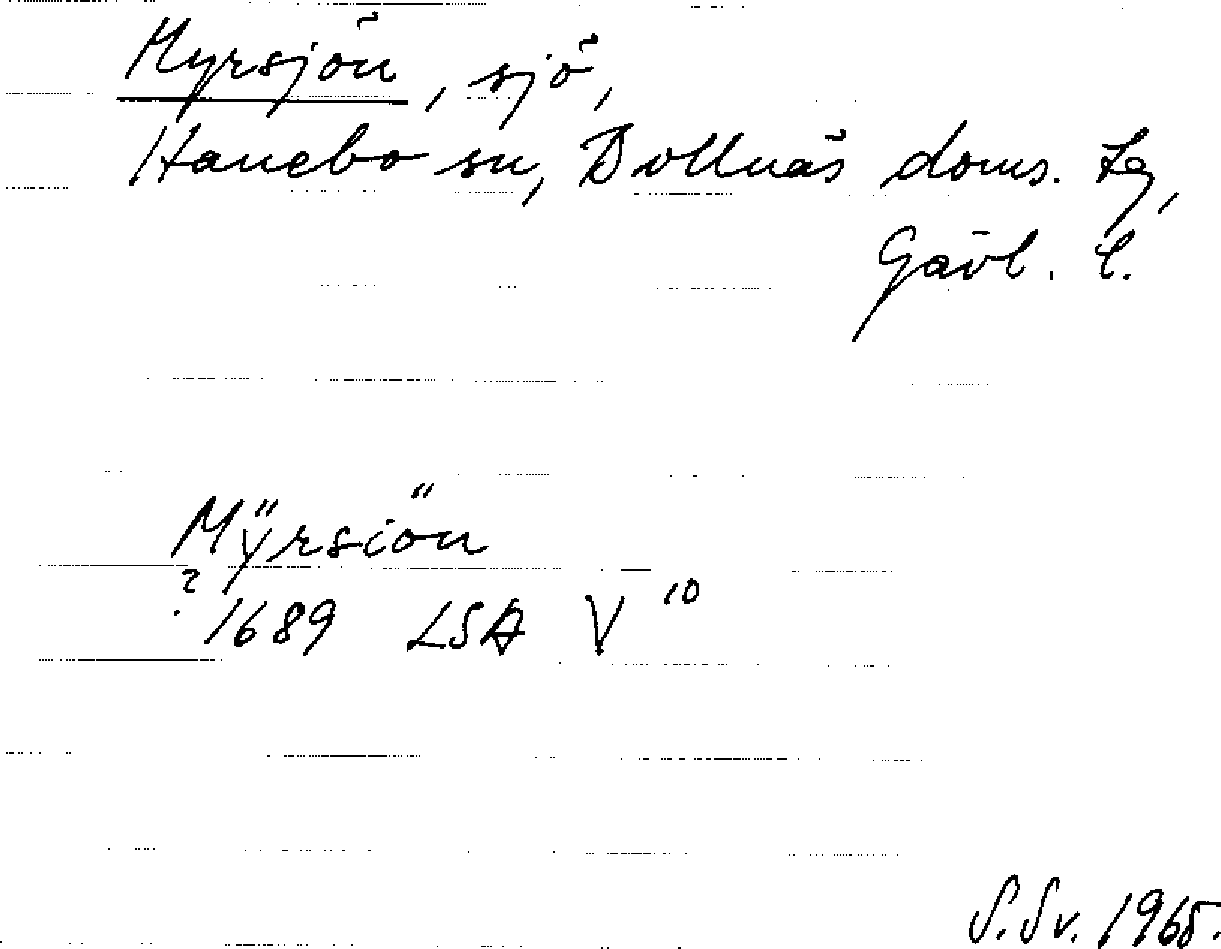 Myrsjön, sjö,
Hanebo sn, Bollnäs doms. tg,
Gävl. l.
Mÿrsiön
? 1689 LSA V 10
S. Sv. 1965.